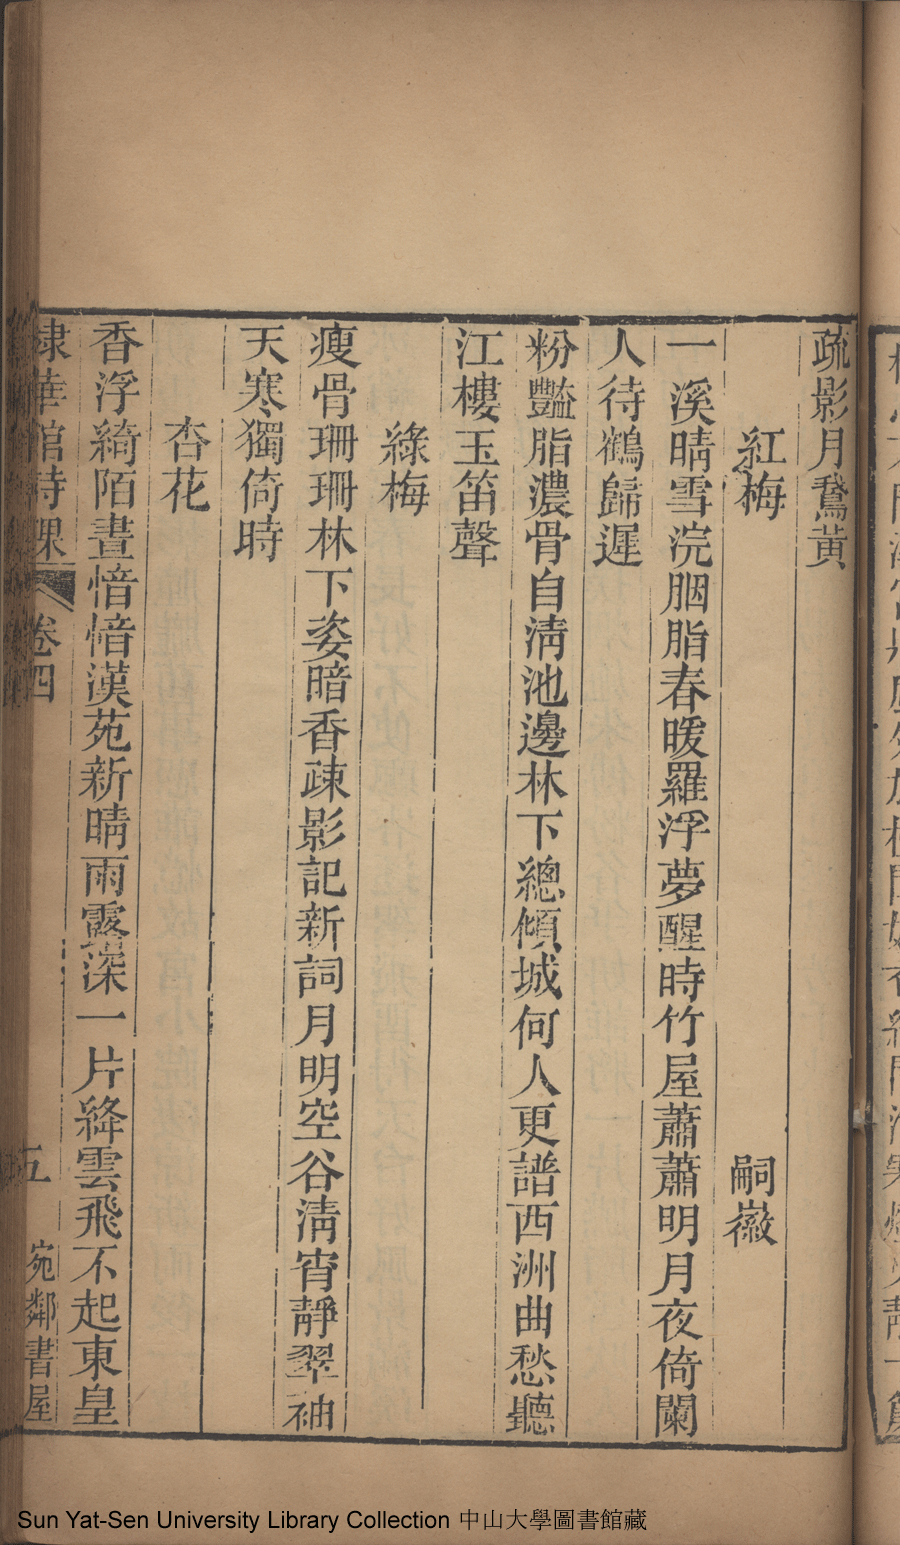 疏影月鵞黃
紅梅 嗣徽
一溪晴雪浣胭脂春暖羅浮夢醒時竹屋蕭蕭明月夜倚闌
人待鶴歸遲
粉豔脂濃骨自淸池邊林下總傾城何人更譜西洲曲愁聽
江樓玉笛聲
綠梅
瘦骨珊珊林下姿暗香疎影記新詞月明空谷淸宵靜翠袖
天寒獨倚時
杏花
香浮綺陌晝愔愔漢苑新晴雨露深一片絳雲飛不起東皇
棣華館詩課 卷四 五 宛鄰書屋
Sun Yat-Sen University Library Collection 中山大學圖書館藏